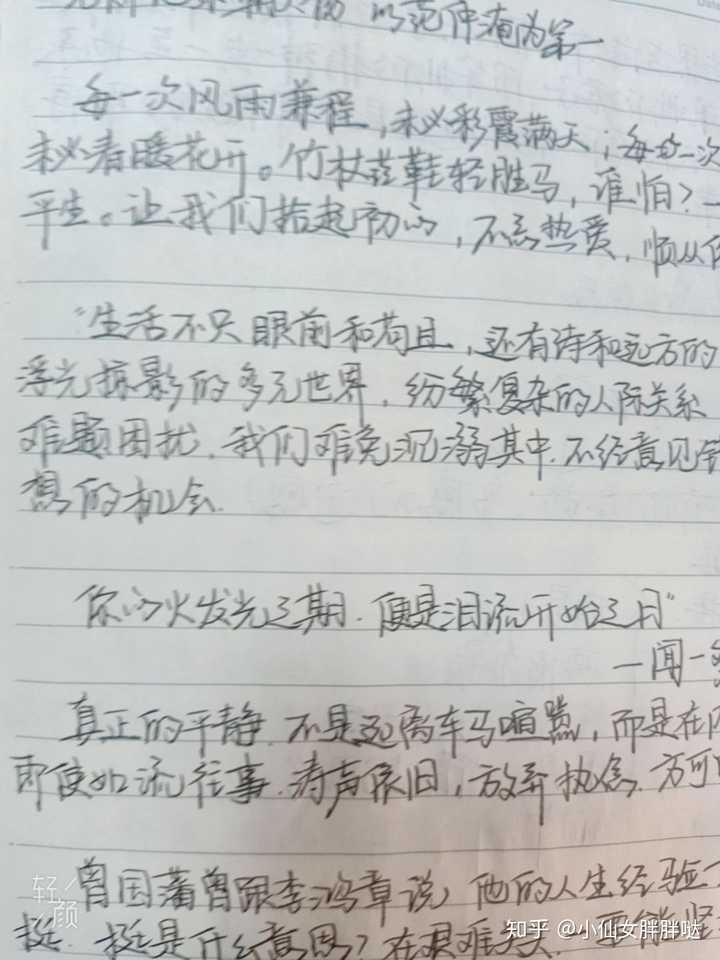 以范仲淹为第一
每一次风雨兼程，未必彩霞满天；每一次
未必春暖花开。竹杖芒鞋轻胜马，谁怕？一
平生。让我们拾起初心，不忘热爱，顺从
"生活不只眼前和苟且，还有诗和远方的
浮光掠影的多元世界，纷繁复杂的人际关系
难题困扰，我们难免沉溺其中，不经意见
想的机会。
你的火发光之期，便是泪流开始之日"
一闻一
真正的平静，不是远离车马喧嚣，而是在
即使如流往事，涛声依旧，放弃执念，方可
曾国藩曾跟李鸿章说，他的人生经验
挺，挺是什么意思？在艰难关头，要能
轻颜
知乎 @小仙女胖胖哒